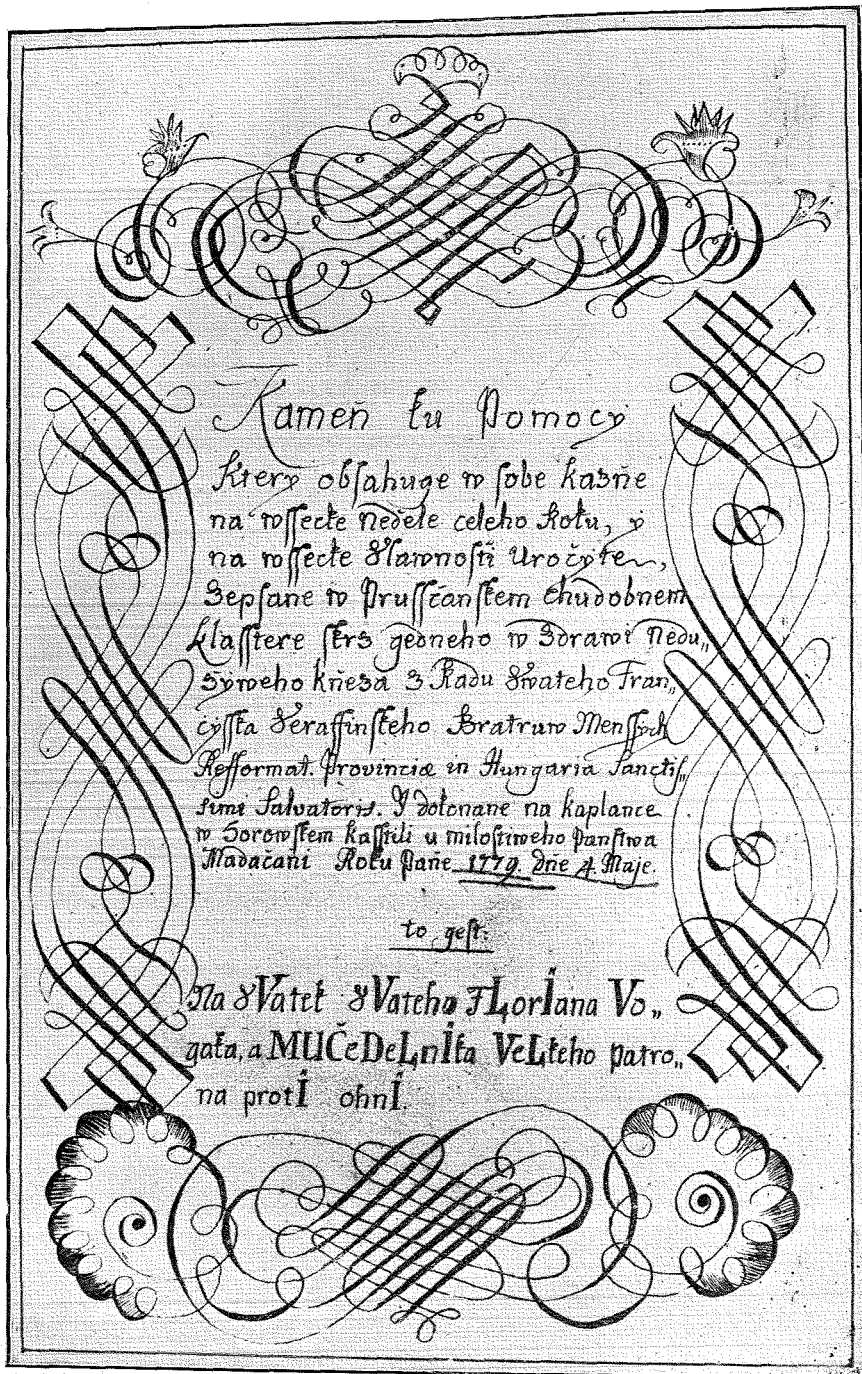 Kameň ku Pomocy
Ktery obsahuge w sobe kazňe
na wssecke Neďele celeho Roku, y
na wssecke Slawnosti Uročyte,
Zepsane w Prussčanskem Chudobnem
Klasstere skrz gedneho w Zdrawi Nedu„
zyweho kňeza Z Radu Swateho Fran„
cysska Seraffinskeho Bratruw Menssych
Refformat. Provinciæ in Hungaria Sanctis„
simi Salvatoris. Y dokonane na kaplance
w Sorowskem kasstili u milostiweho Panstwa
Madačani Roku Pañe 1779. dñe 4. Maje.
to gest:
Na SVatek SVateho FLorIana Vo„
gaka, a MUČeDeLnIka VeLkeho patro„
na protI ohnI.